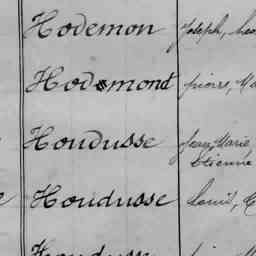 Hodemon Joseph,
Hodemont pierre, Ma
Houdusse Jean, Marie,
Etienne
Houdusse Louis,